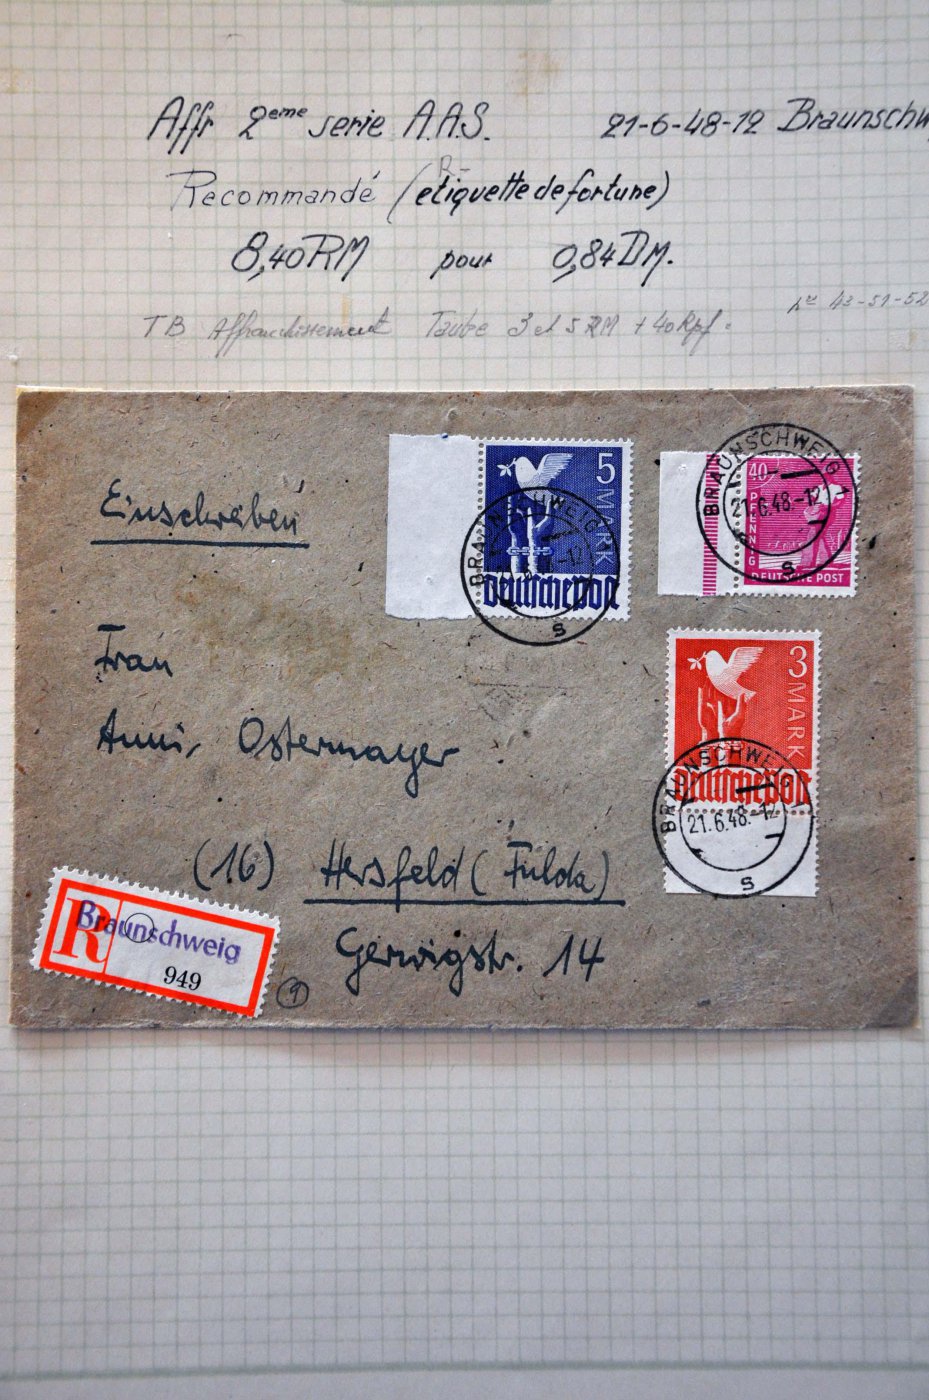 Affr 2eme serie A.A.S. 21-6-48-12 Braunschw
R-
Recommandé (etiquette de fortune)
8,40 RM pour 0,84 DM.
TB Affranchissement Taube 3 et 5 RM + 40 Rpf.
43-51-52
Einschreiben
Frau
Anni Ostermayer
(16) Hersfeld (Fulda)
Gerwigstr. 14
5 MARK
Deutsche Post
BRAUNSCHWEIG
s
40
PFENNIG
DEUTSCHE POST
BRAUNSCHWEIG
21.6.48.-12
s
3 MARK
Deutsche Post
BRAUNSCHWEIG
21.6.48.-12
s
R
Braunschweig
949
9